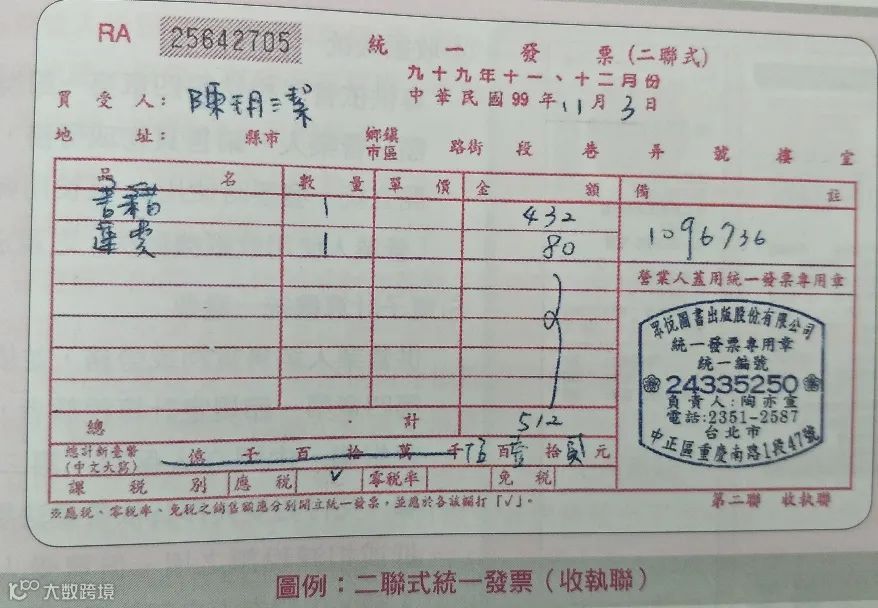 RA 25642705
統一發票(二聯式)
九十九年十一、十二月份
中華民國99年11月3日
買受人:陳玥潔
地址: 縣市 鄉鎮市區 路街 段 巷 弄 號 樓 室
品名 數量 單價 金額 備註
書籍 1 432
運費 1 80
1096736
營業人蓋用統一發票專用章
眾悅圖書出版股份有限公司
統一發票專用章
統一編號
24335250
負責人:陶亦宣
電話:2351-2587
台北市
中正區重慶南路1段47號
總計 512
總計新臺幣(中文大寫) 億 千 百 拾 萬 千 伍百壹拾貳元
課稅別 應稅 √ 零稅率 免稅
※應稅、零稅率、免稅之銷售額應分別開立統一發票,並應於各該欄打「√」。
第二聯 收執聯
圖例:二聯式統一發票(收執聯)
大数跨境